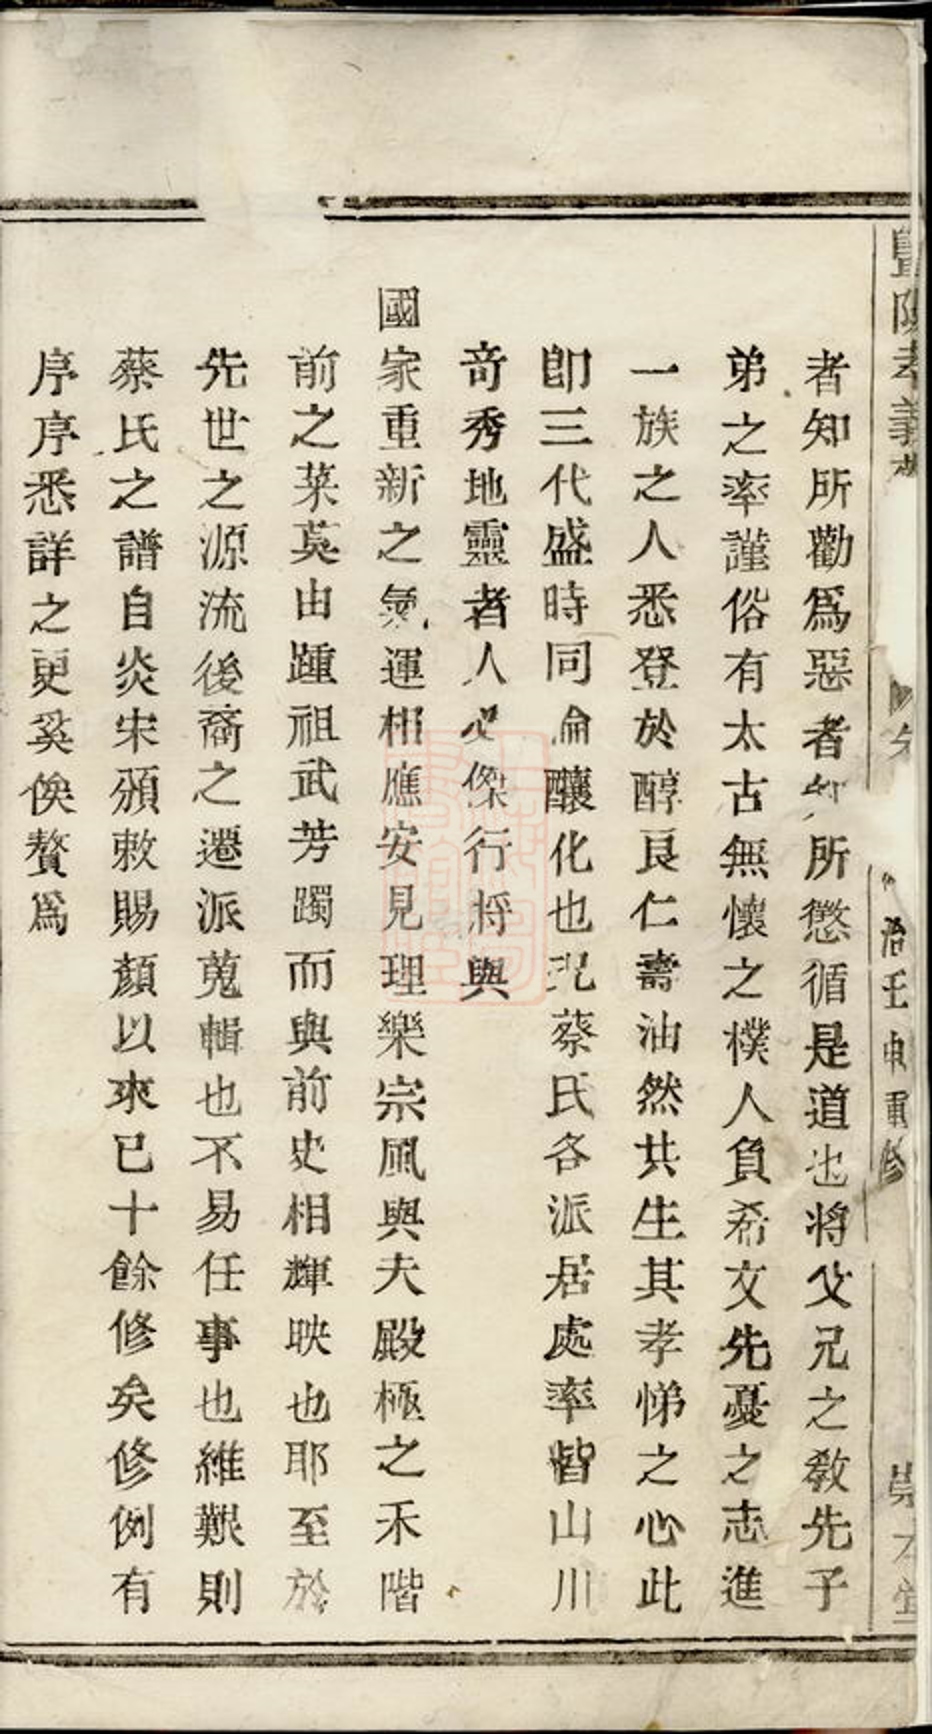 暨陽孝義
治壬申重修
崇本堂
者知所勸爲惡者知所懲循是道也將父兄之教先子
弟之率謹俗有太古無懷之樸人負希文先憂之志進
一族之人悉登於醇良仁壽油然共生其孝悌之心此
卽三代盛時同淪釀化也况蔡氏各派居處率皆山川
竒秀地靈者人必傑行将與
國家重新之氣運相應安見理樂宗風與夫殿極之禾階
前之菜莫由踵祖武芳躅而與前史相輝映也耶至於
先世之源流後裔之遷派蒐輯也不易任事也維艱則
蔡氏之譜自炎宋頒敕賜顏以來已十餘修矣修例有
序序悉詳之更奚俟贅爲